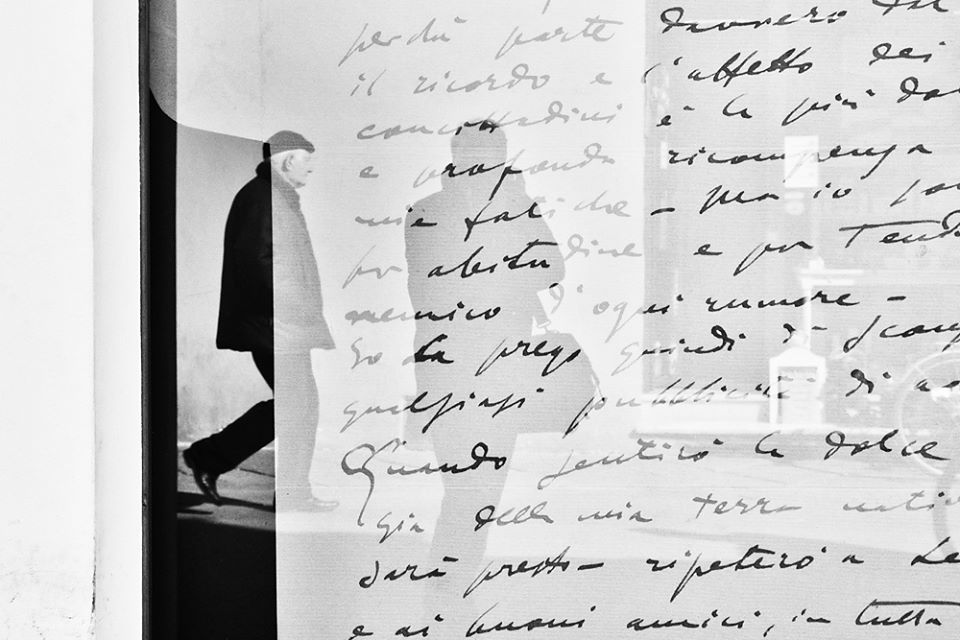 perchè parte davvero dal
il ricordo e l'affetto dei
concittadini è la più dol
e profonda ricompensa
mie fatiche - ma io
per abitudine e per
nemico d'ogni rumore -
Io La prego quindi di
qualsiasi pubblicità di
Quando sentirò la dolce
gia della mia terra nati
darà presto - ripeterò a Le
e ai buoni amici, in tutta